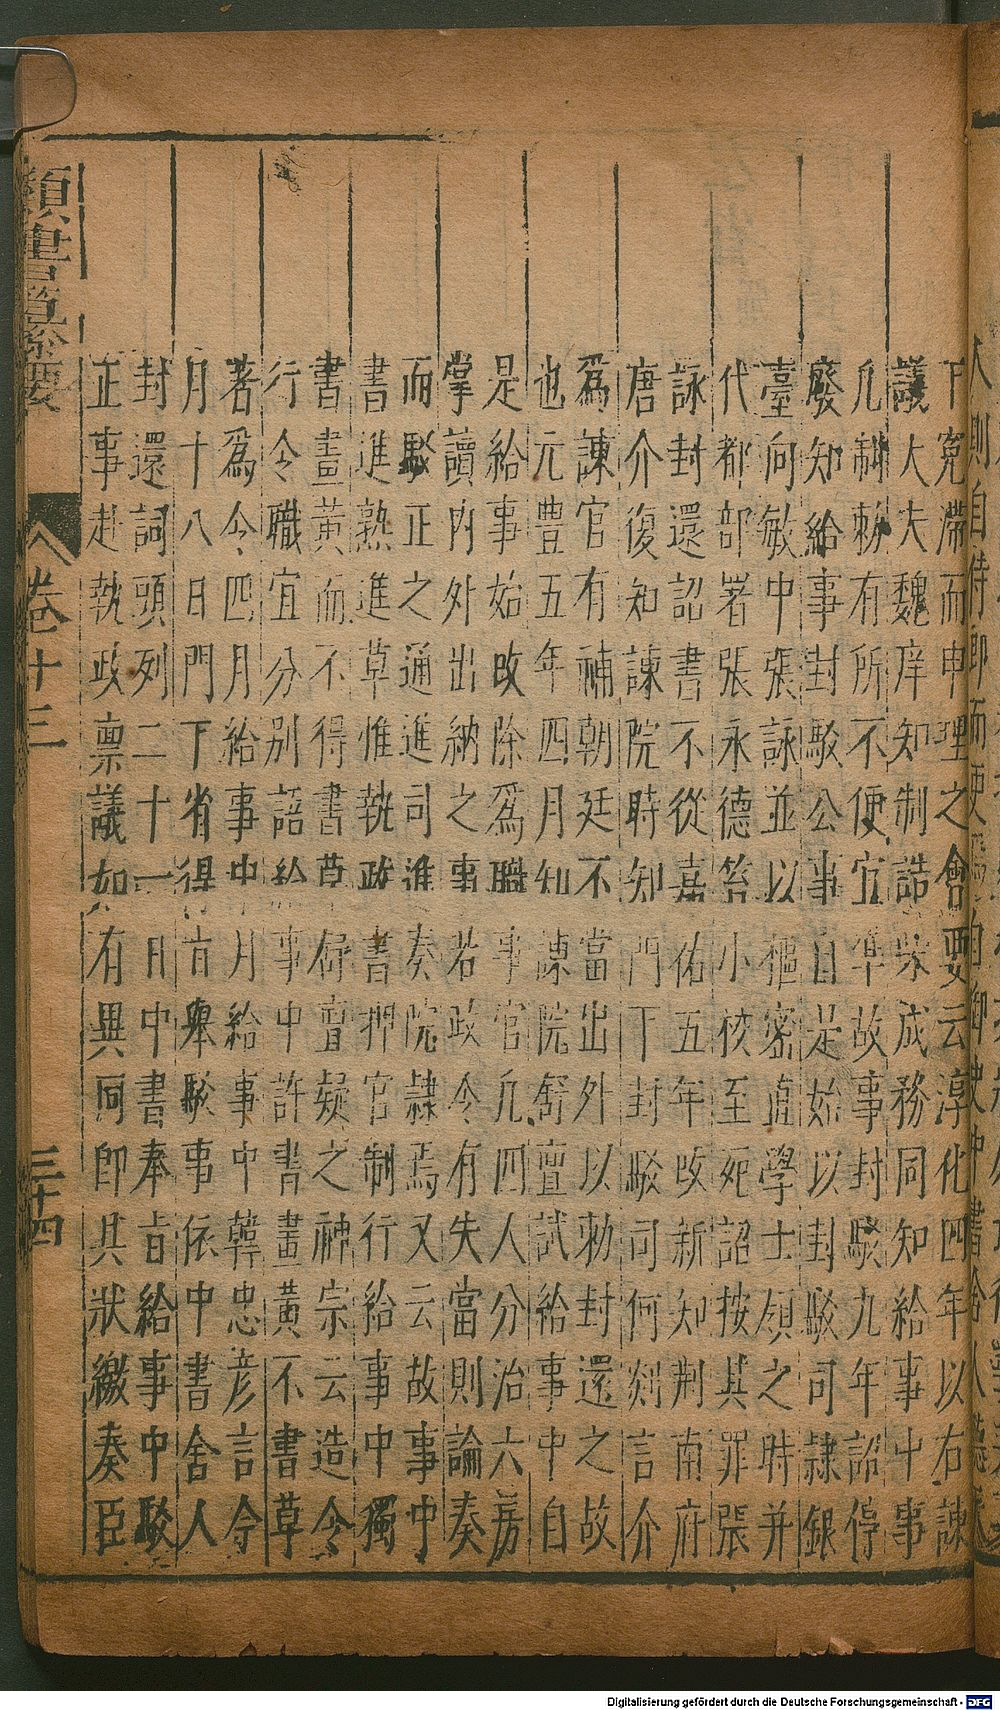 下寃滯而申理之會要云淳化四年以右諫
議大夫魏庠知制誥柴成務同知給事中事
凡制勑有所不便宜準故事封駁九年詔停
廢知給事封駁公事自是始以封駁司隷銀
臺向敏中張詠並以樞密直學士領之時并
代都部署張永德笞小校至死詔按其罪張
詠封還詔書不從嘉佑五年改新知荆南府
唐介復知諫院時知門下封駁司何剡言介
爲諫官有補朝廷不當出外以勑封還之故
也元豊五年四月知諫院舒亶試給事中自
是給事始改除爲職事官凡四人分治六房
掌讀内外出納之事若政令有失當則論奏
而駁正之通進司進奏院隷焉又云故事中
書進熟進草惟執政書押官制行給事中獨
書畫黄而不得書草舒亶疑之神宗云造令
行令職宜分别詔給事中許書畫黄不書草
著爲令四月給事中月給事中韓忠彦言今
月十八日門下省得旨舉駁事依中書舍人
封還詞頭列二十一日中書奉旨給事中駁
正事赴執政稟議如有異同卽具狀繳奏臣
類書纂要 卷十三 三十四
Digitalisierung gefördert durch die Deutsche Forschungsgemeinschaft - DFG